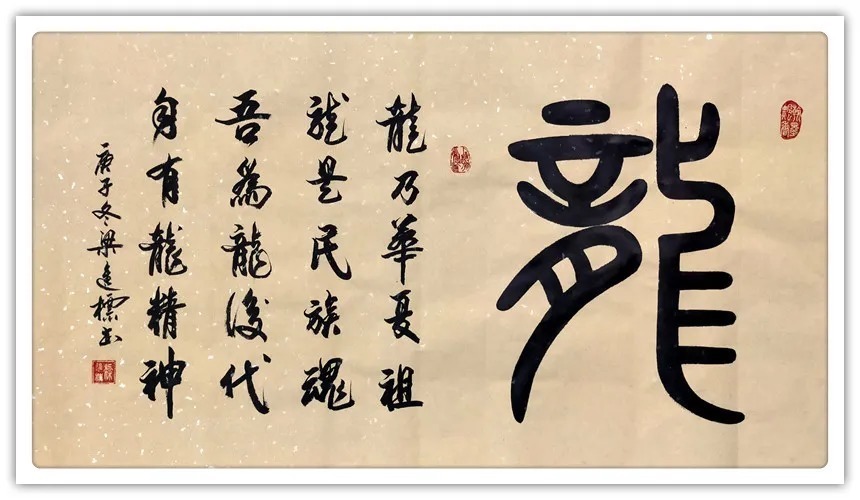 龍
龍乃華夏祖
龍是民族魂
吾為龍後代
身有龍精神
庚子冬梁逵標书